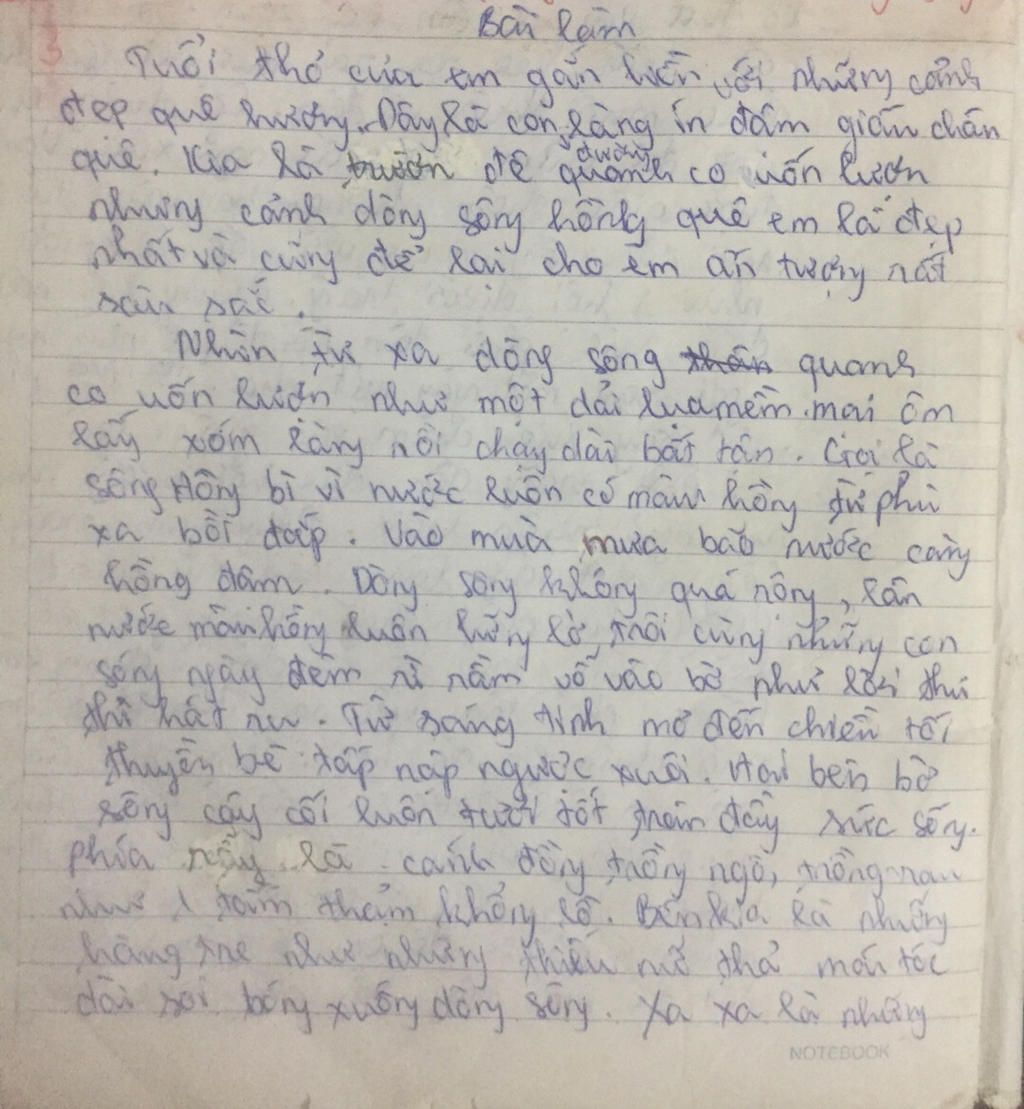 Bài làm
Tuổi thơ của em gắn liền với những cảnh
đẹp quê hương. Đây là con làng in đậm giấu chân
quê. Kia là đường
trườn đê quanh co uốn lượn
nhưng cảnh dòng sông hồng quê em là đẹp
nhất và cũng để lại cho em ấn tượng nất
sâu sắc.
Nhìn từ xa dòng sông quanh
co uốn lượn như một dải lụa mềm mại ôm
lấy xóm làng nồi chạy dài bất tận. Gọi là
sông Hồng bì vì nước luôn có màu hồng từ phù
xa bồi đắp. Vào mùa mưa bão nước càng
hồng đậm. Dòng sông không quá nông, lần
nước màu hồng luôn lững lờ, trôi cùng những con
sóng ngày đêm nì nầm vỗ vào bờ như lời thủ
thỉ hát nu. Từ sáng tinh mơ đến chiều tối
thuyền bè tấp nập ngược xuôi. Hai bên bờ
sông cây cối luôn tươi tốt tràn đầy sức sống.
phía nầy là cánh đồng trồng ngô, trồng nau
như 1 tấm thảm khổng lồ. Bên kia là những
hàng tre như những thiếu nữ thả mái tóc
dài soi bóng xuống dòng sông. Xa xa là những
NOTEBOOK